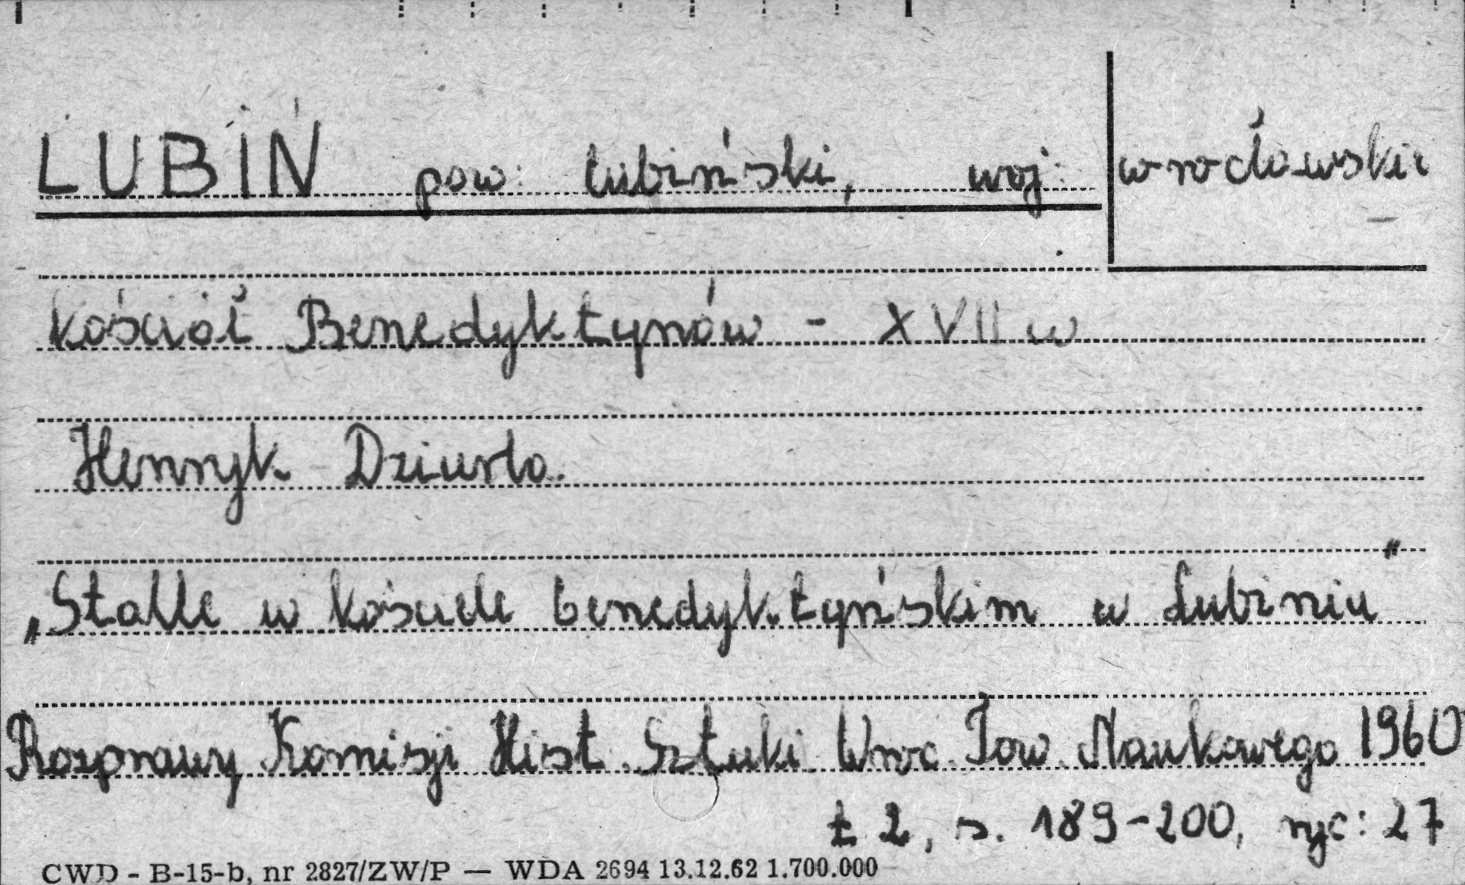 LUBIŃ pow. lubiński, woj. wrocławskie
Kościół Benedyktynów - XVII w
Henryk Dziurla.
„Stalle w kościele benedyktyńskim w Lubiniu”
Rozprawy Komisji Hist. Sztuki Wroc. Tow. Naukowego 1960
t 2, s. 189-200, ryc: 27
CWD - B-15-b, nr 2827/ZW/P — WDA 2694 13.12.62 1.700.000